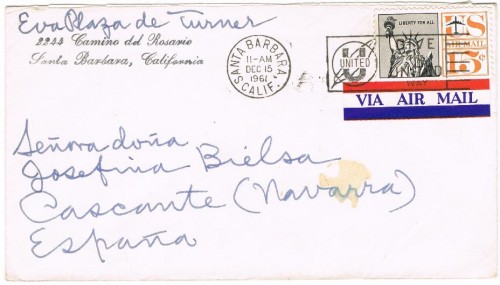 Eva Plaza de Turner
2244 Camino del Rosario
Santa Barbara, California
SANTA BARBARA,
11-AM
DEC 15
1961
CALIF.
UNITED
GIVE
UNITED
WAY
LIBERTY FOR ALL
US
AIR MAIL
15¢
VIA AIR MAIL
Señora doña
Josefina Bielsa
Cascante (Navarra)
España